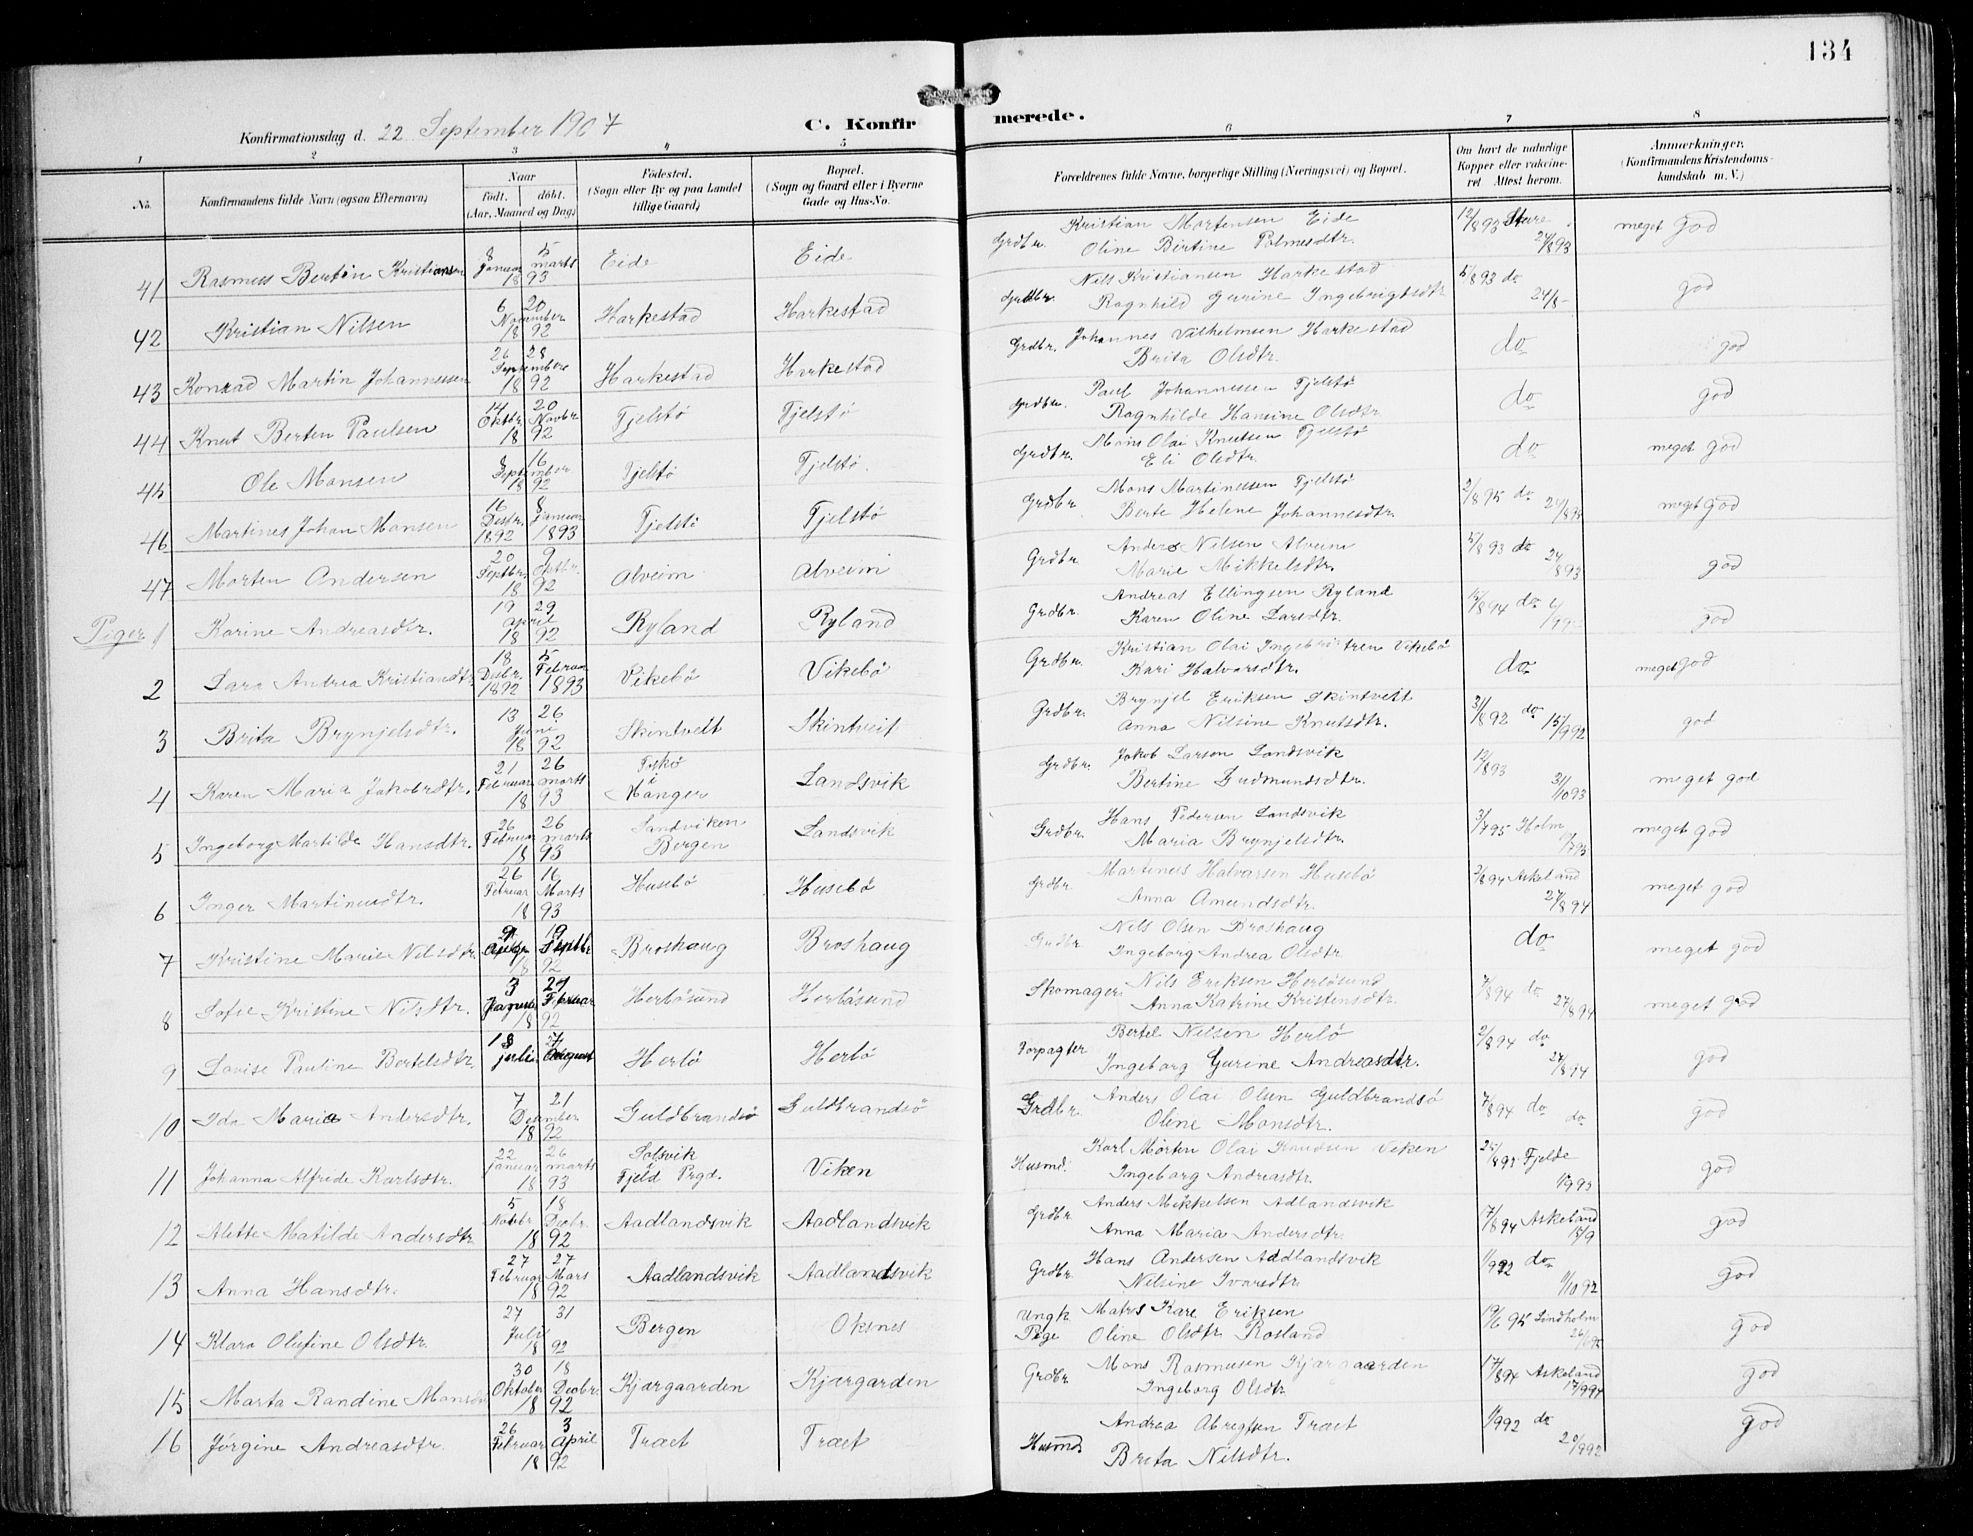 134
Konfirmationsdag d. 22 September 1907
C. Konfirmerede.
1 2 3 4 5 6 7 8
No. Konfirmandens fulde Navn (ogsaa Efternavn) Naar født. døbt. (Aar, Maaned og Dag) Fødested. (Sogn eller By og paa Landet tillige Gaard) Bopæl. (Sogn og Gaard eller i Byerne Gade og Hus-No. Forældrenes fulde Navne, borgerlige Stilling (Næringsvei) og Bopæl. Om havt de naturlige Kopper eller vakcineret Attest herom. Anmærkninger. (Konfirmandens Kristendomskundskab m. V.)
41 Rasmus Bertin Kristiansen 8 Januar 5 marts 1893 Eide Eide Grdbr. Kristian Mortensen Eide
Oline Bertine Palmesdtr. 12/893 24/893 meget god
42 Kristian Nilsen 6 20 November 1892 Harkestad Harkestad Grdbr. Nils Kristiansen Harkestad
Ragnhild Gurine Ingebrigtsdtr 5/893 do 24/8 god
43 Konrad Martin Johannessen 26 28 September 1892 Harkestad Harkestad Grdbr. Johannes Vilhelmsen Harkestad
Brita Olsdtr. do god
44 Knut Berten Paulsen 14 Oktbr. 20 Novbr 1892 Tjelstø Tjelstø Grdbr. Paul Johannessen Tjelstø
Ragnhilde Hansine Olsdtr do god
45 Ole Monsen 8 16 September 1892 Tjelstø Tjelstø. Grdbr. Mons Olai Knutsen Tjelstø
Eli Olsdtr. do meget god
46 Martines Johan Monsen 16 Desbr. 1892 8 Januar 1893 Tjelstø Tjelstø Grdbr. Mons Martinessen Tjelstø
Berte Helene Johannesdtr. 2/895 do 24/895 meget god
47 Morten Andersen 20 Septbr. 9 1892 Alveim Alveim Grdbr. Anders Nilsen Alveim
Marie Mikkelsdtr. 5/893 do 24/893 god
Piger 1 Karine Andreasdtr. 19 29 April 1892 Ryland Ryland Grdbr. Andreas Ellingsen Ryland
Karen Oline Larsdtr. 12/894 do god
2 Lara Andrea Kristiandtr 18 Desbr. 1892 5 Februar 1893 Vikebø Vikebø Grdbr. Kristian Olai Vikebø
Kari Halvorsdtr. do meget god
3 Brita Brynjelsdtr. 13 26 June 1892 Skintveit Skintveit Grdbr. Brynjel Eriksen Skintveit
Anna Nilsine Knutsdtr. 31/892 do 15/992 god
4 Karen Maria Jakobsdtr. 21 Februar 26 marts 1893 i Manger Landsvik Grdbr. Jakob Larsen Landsvik
Bertine Gudmundsdtr. 12/893 31/1093 meget god
5 Ingeborg Martilde Hansdtr. 26 Februar 26 marts 1893 Sandviken Bergen Landsvik Grdbr. Hans Pedersen Landsvik
Maria Brynjelsdtr. 3/795 Holm meget god
6 Inger Martinusdtr. 26 Februar 16 Marts 1893 Husebø Husebø Grdbr. Martinus Halvorsen Husebø
Anna Amundsdtr. 2/894 Askeland 27/894 meget god
7 Kristine Marie Nilsdtr. 19 Septbr 1892 Broshaug Broshaug Grdbr. Nils Olsen Broshaug
Ingeborg Andrea Olsdtr do meget god
8 Sofie Kristine Nilsdtr. 3 Januar 27 Februar 1892 Herløsund Herløsund Skomager Nils Eriksen Herløsund
Anna Katrine Kristensdtr. 7/894 do 27/894 meget god
9 Lovise Pauline Bertelsdtr. 18 juli 27 August Herlø Herlø Forpagter Bertel Nilsen Herlø
Ingeborg Gurine Andreasdtr. 2/894 do 27/894 god
10 Ida Maria Andersdtr. 7 21 Desember 1892 Guldbrandsø Guldbrandsø Grdbr. Anders Olai Olsen Guldbrandsø
Oline Monsdtr. 7/894 do do god
11 Johanna Alfride Karlsdtr. 22 januar 26 marts 1893 Solsvik Fjeld Prgd. Viken Husmd. Karl Morten Olai Knudsen Viken
Ingeborg Andreasdtr. Fjelde god
12 Alette Matilde Andersdtr 5 Novbr. 18 Decbr. 1892 Aadlandsvik Aadlandsvik Grdbr. Anders Mikkelsen Adlandsvik
Anna Maria Andersdtr. 7/894 Askeland god
13 Anna Hansdtr. 27 Februar 27 Mars 1892 Aadlandsvik Aadlandsvik Grdbr. Hans Andersen Aadlandsvik
Nilsine Ivarsdtr. 1/992 do 1/1092 god
14 Klara Olufine Olsdtr. 27 31 Juli 1892 Bergen Oksnes Ungk. Matros Kare Eriksen
Pige Oline Olsdtr. Rosland 19/6 95 Lindholm god
15 Marta Randine Monsdtr 30 Oktober 18 Decbr. 1892 Kjærgaarden Kjærgarden Grdbr. Mons Rasmusen Kjærgaarden
Ingeborg Olsdtr. 17/894 Askeland 17/994 god
16 Jørgine Andreasdtr. 26 Februar 3 April 1892 Træet Træet Husmd. Andrea Træet
Brita Nilsdtr. 1/992 do 20/992 god